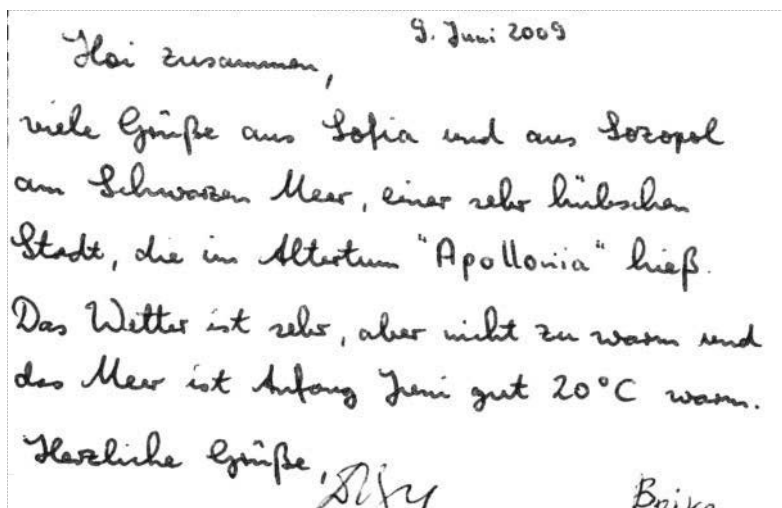 9. Juni 2009
Hoi zusammen,
viele Grüße aus Sofia und aus Sozopol
am Schwarzen Meer, einer sehr hübschen
Stadt, die im Altertum "Apollonia" hieß.
Das Wetter ist sehr, aber nicht zu warm und
das Meer ist Anfang Juni gut 20°C warm.
Herzliche Grüße,